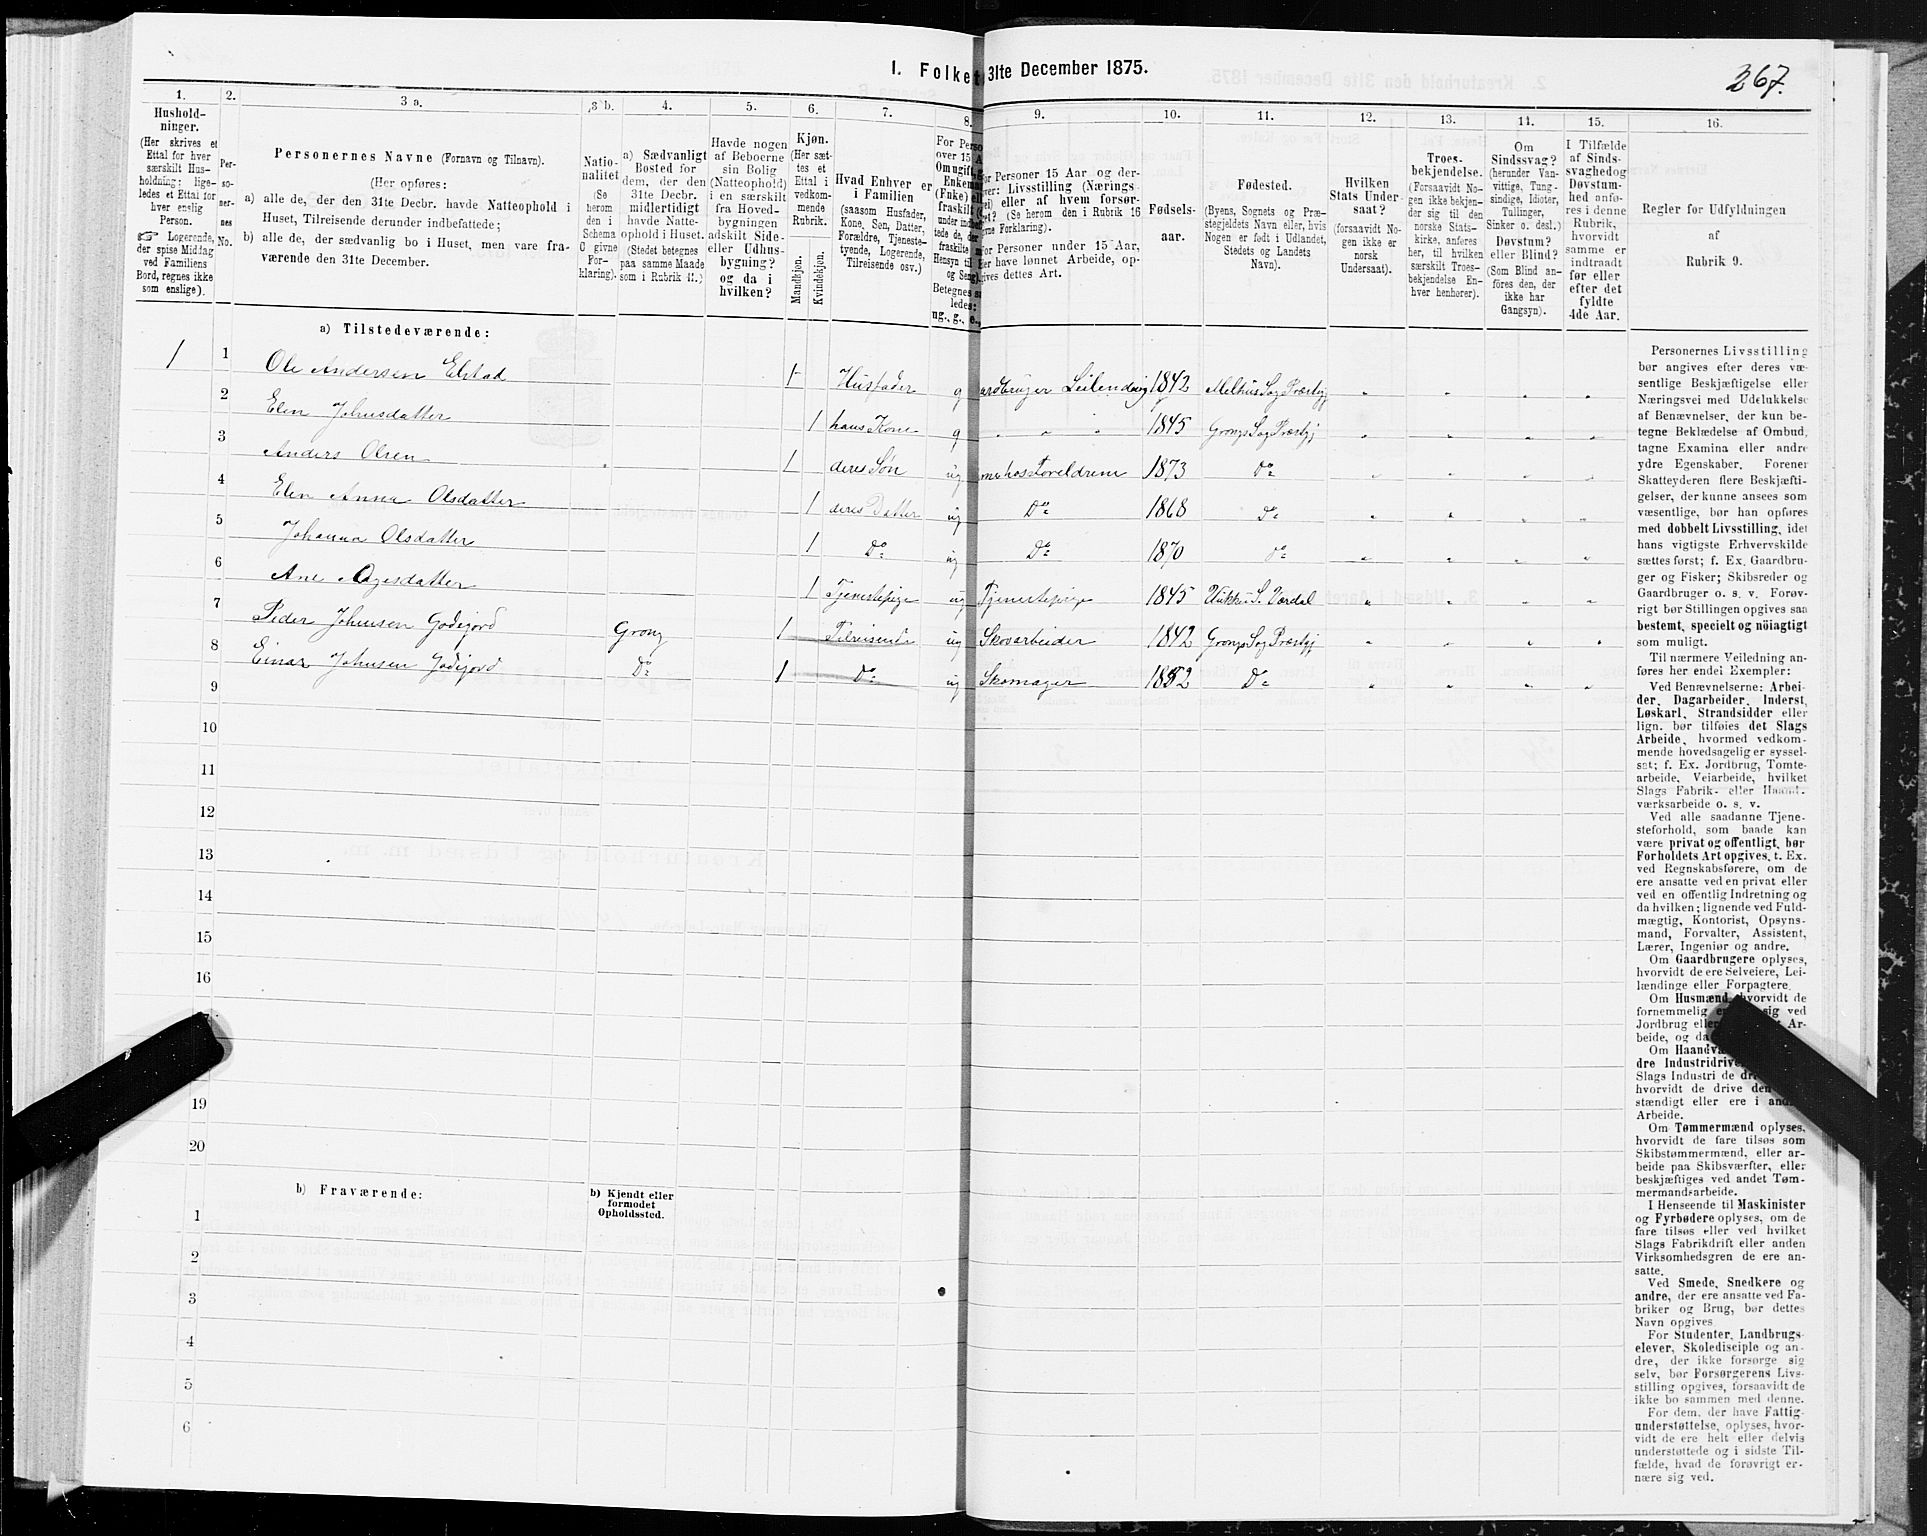 1. Folket 31te December 1875.
267.
1. 2. 3 a. 3 b. 4. 5. 6. 7. 8. 9. 10. 11. 12. 13. 14. 15. 16.
Hushold-
ninger.
(Her skrives et
Ettal for hver
særskilt Hus-
holdning; lige-
ledes et Ettal for
hver enslig
Person.
☞ Logerende,
der spise Middag
ved Familiens
Bord, regnes ikke
som enslige).
Per-
so-
ner-
nes
No.
Personernes Navne (Fornavn og Tilnavn).
(Her opføres:
a) alle de, der den 31te Decbr. havde Natteophold i
Huset, Tilreisende derunder indbefattede;
b) alle de, der sædvanlig bo i Huset, men vare fra-
værende den 31te December.
Natio-
nalitet
(Se
herom
den i
Schema
C givne
For-
klaring).
a) Sædvanligt
Bosted for
dem, der den
31te Decbr.
midlertidigt
havde Natte-
ophold i Huset.
(Stedet betegnes
paa samme Maade
som i Rubrik 11.)
Havde nogen
af Beboerne
sin Bolig
(Natteophold)
i en særskilt
fra Hoved-
bygningen
adskilt Side-
eller Udhus-
bygning?
og da i
hvilken?
Kjøn.
(Her sæt-
tes et
Ettal i
vedkom-
mende
Rubrik.
Mandkjøn.
Kvindekjøn.
Hvad Enhver er
i Familien
(saasom Husfader,
Kone, Søn, Datter,
Forældre, Tjeneste-
tyende, Logerende,
Tilreisende osv.)
For Perso
over 15 A
Omugift,
Enkeman
(Fnke) ell
fraskilt (
under indbe
tede de, de
fraskilte
Hensyn til
og Seng).
Betegnes s
ledes:
ug., g., e.,
For Personer 15 Aar og der-
over: Livsstilling (Nærings
vei) eller af hvem forsør-
get? (Se herom den i Rubrik 16
givne Forklaring).
For Personer under 15 Aar,
der have lønnet Arbeide, op-
gives dettes Art.
Fødsels-
aar.
Fødested.
(Byens, Sognets og Præ-
stegjeldets Navn eller, hvis
Nogen er født i Udlandet,
Stedets og Landets
Navn).
Hvilken
Stats Under-
saat?
(forsaavidt No-
gen ikke er
norsk
Undersaat).
Troes-
bekjendelse.
(Forsaavidt No-
gen ikke bekjen-
der sig til den
norske Stats-
kirke, anføres
her, til hvilken
særskilt Troes-
bekjendelse En-
hver henhører).
Om
Sindssvag?
(herunder Van-
vittige, Tung-
sindige, Idioter,
Tullinger,
Sinker o. desl.)
Døvstum?
eller Blind?
(Som Blind an-
føres den, der
ikke har
Gangsyn).
I Tilfælde
af Sinds-
svaghed og
Døvstum-
hed anfø-
res i denne
Rubrik,
hvorvidt
samme er
indtraadt
før eller
efter det
fyldte
4de Aar.
Regler for Udfyldningen
af
Rubrik 9.
a) Tilstedeværende:
1 1 Ole Andersen Elstad 1 Husfader g ardbruger Leilending 1842 Melhus Sog Præstgj
2 Elen Johnsdatter 1 hans Kone g " " " 1845 Grongs Sog Præstgj
3 Anders Olsen 1 deres Søn ug 1873 Do
4 Elen Anna Olsdatter 1 deres Datter ug Do 1868 Do
5 Johanna Olsdatter 1 Do ug Do 1870 Do
6 Ane 1 Tjenestepige ug Tjenestepige 1845
7 Peder Johnsen Godejord Grong 1 Tilreisende ug Skovarbeider 1842 Grongs Sog Præstgj
8 Einar Johnsen Godejord Do 1 Do ug Skomager 1852 Do
9
10
11
12
13
14
15
16
19
20
b) Fraværende:
b) Kjendt eller
formodet
Opholdssted.
1
2
3
4
5
6
Personernes Livsstilling
bør angives efter deres væ-
sentlige Beskjæftigelse eller
Næringsvei med Udelukkelse
af Benævnelser, der kun be-
tegne Beklædelse af Ombud,
tagne Examina eller andre
ydre Egenskaber. Forener
Skatteyderen flere Beskjæfti-
gelser, der kunne ansees som
væsentlige, bør han opføres
med dobbelt Livsstilling, idet
hans vigtigste Erhvervskilde
sættes først; f. Ex. Gaardbru-
ger og Fisker; Skibsreder og
Gaardbruger o. s. v. Forøv-
rigt bør Stillingen opgives saa
bestemt, specielt og nøiagtigt
som muligt.
Til nærmere Veiledning an-
føres her endel Exempler:
Ved Benævnelserne: Arbei-
der, Dagarbeider, Inderst,
Løskarl, Strandsidder eller
lign. bør tilføies det Slags
Arbeide, hvormed vedkom-
mende hovedsagelig er syssel-
sat; f. Ex. Jordbrug, Tomte-
arbeide, Veiarbeide, hvilket
Slags Fabrik- eller Haand-
værksarbeide o. s. v.
Ved alle saadanne Tjene-
steforhold, som baade kan
være privat og offentligt, bør
Forholdets Art opgives, t. Ex.
ved Regnskabsførere, om de
ere ansatte ved en privat eller
ved en offentlig Indretning og
da hvilken; lignende ved Fuld-
mægtig, Kontorist, Opsyns-
mand, Forvalter, Assistent,
Lærer, Ingeniør og andre.
Om Gaardbrugere oplyses,
hvorvidt de ere Selveiere, Lei-
lændinge eller Forpagtere.
Om Husmænd, hvorvidt de
fornemmelig er sig ved
Jordbrug elle t Ar-
beide, og da
Om Haandv
dre Industridriv
Slags Industri de dr
hvorvidt de drive den
stændigt eller ere i and
Arbeide.
Om Tømmermænd oplyses,
hvorvidt de fare tilsøs som
Skibstømmermænd, eller ar-
beide paa Skibsværfter, eller
beskjæftiges ved andet Tøm-
mermandsarbeide.
I Henseende til Maskinister
og Fyrbødere oplyses, om de
fare tilsøs eller ved hvilket
Slags Fabrikdrift eller anden
Virksomhedsgren de ere an-
satte.
Ved Smede, Snedkere og
andre, der ere ansatte ved Fa-
briker og Brug, bør dettes
Navn opgives
For Studenter, Landbrugs-
elever, Skoledisciple og an-
dre, der ikke forsørge sig
selv, bør Forsørgerens Livs-
stilling opgives, forsaavidt de
ikke bo sammen med denne.
For dem, der have Fattig-
understøttelse, oplyses, hvor-
vidt de ere helt eller delvis
understøttede og i sidste Til-
fælde, hvad de forøvrigt er-
nære sig ved.